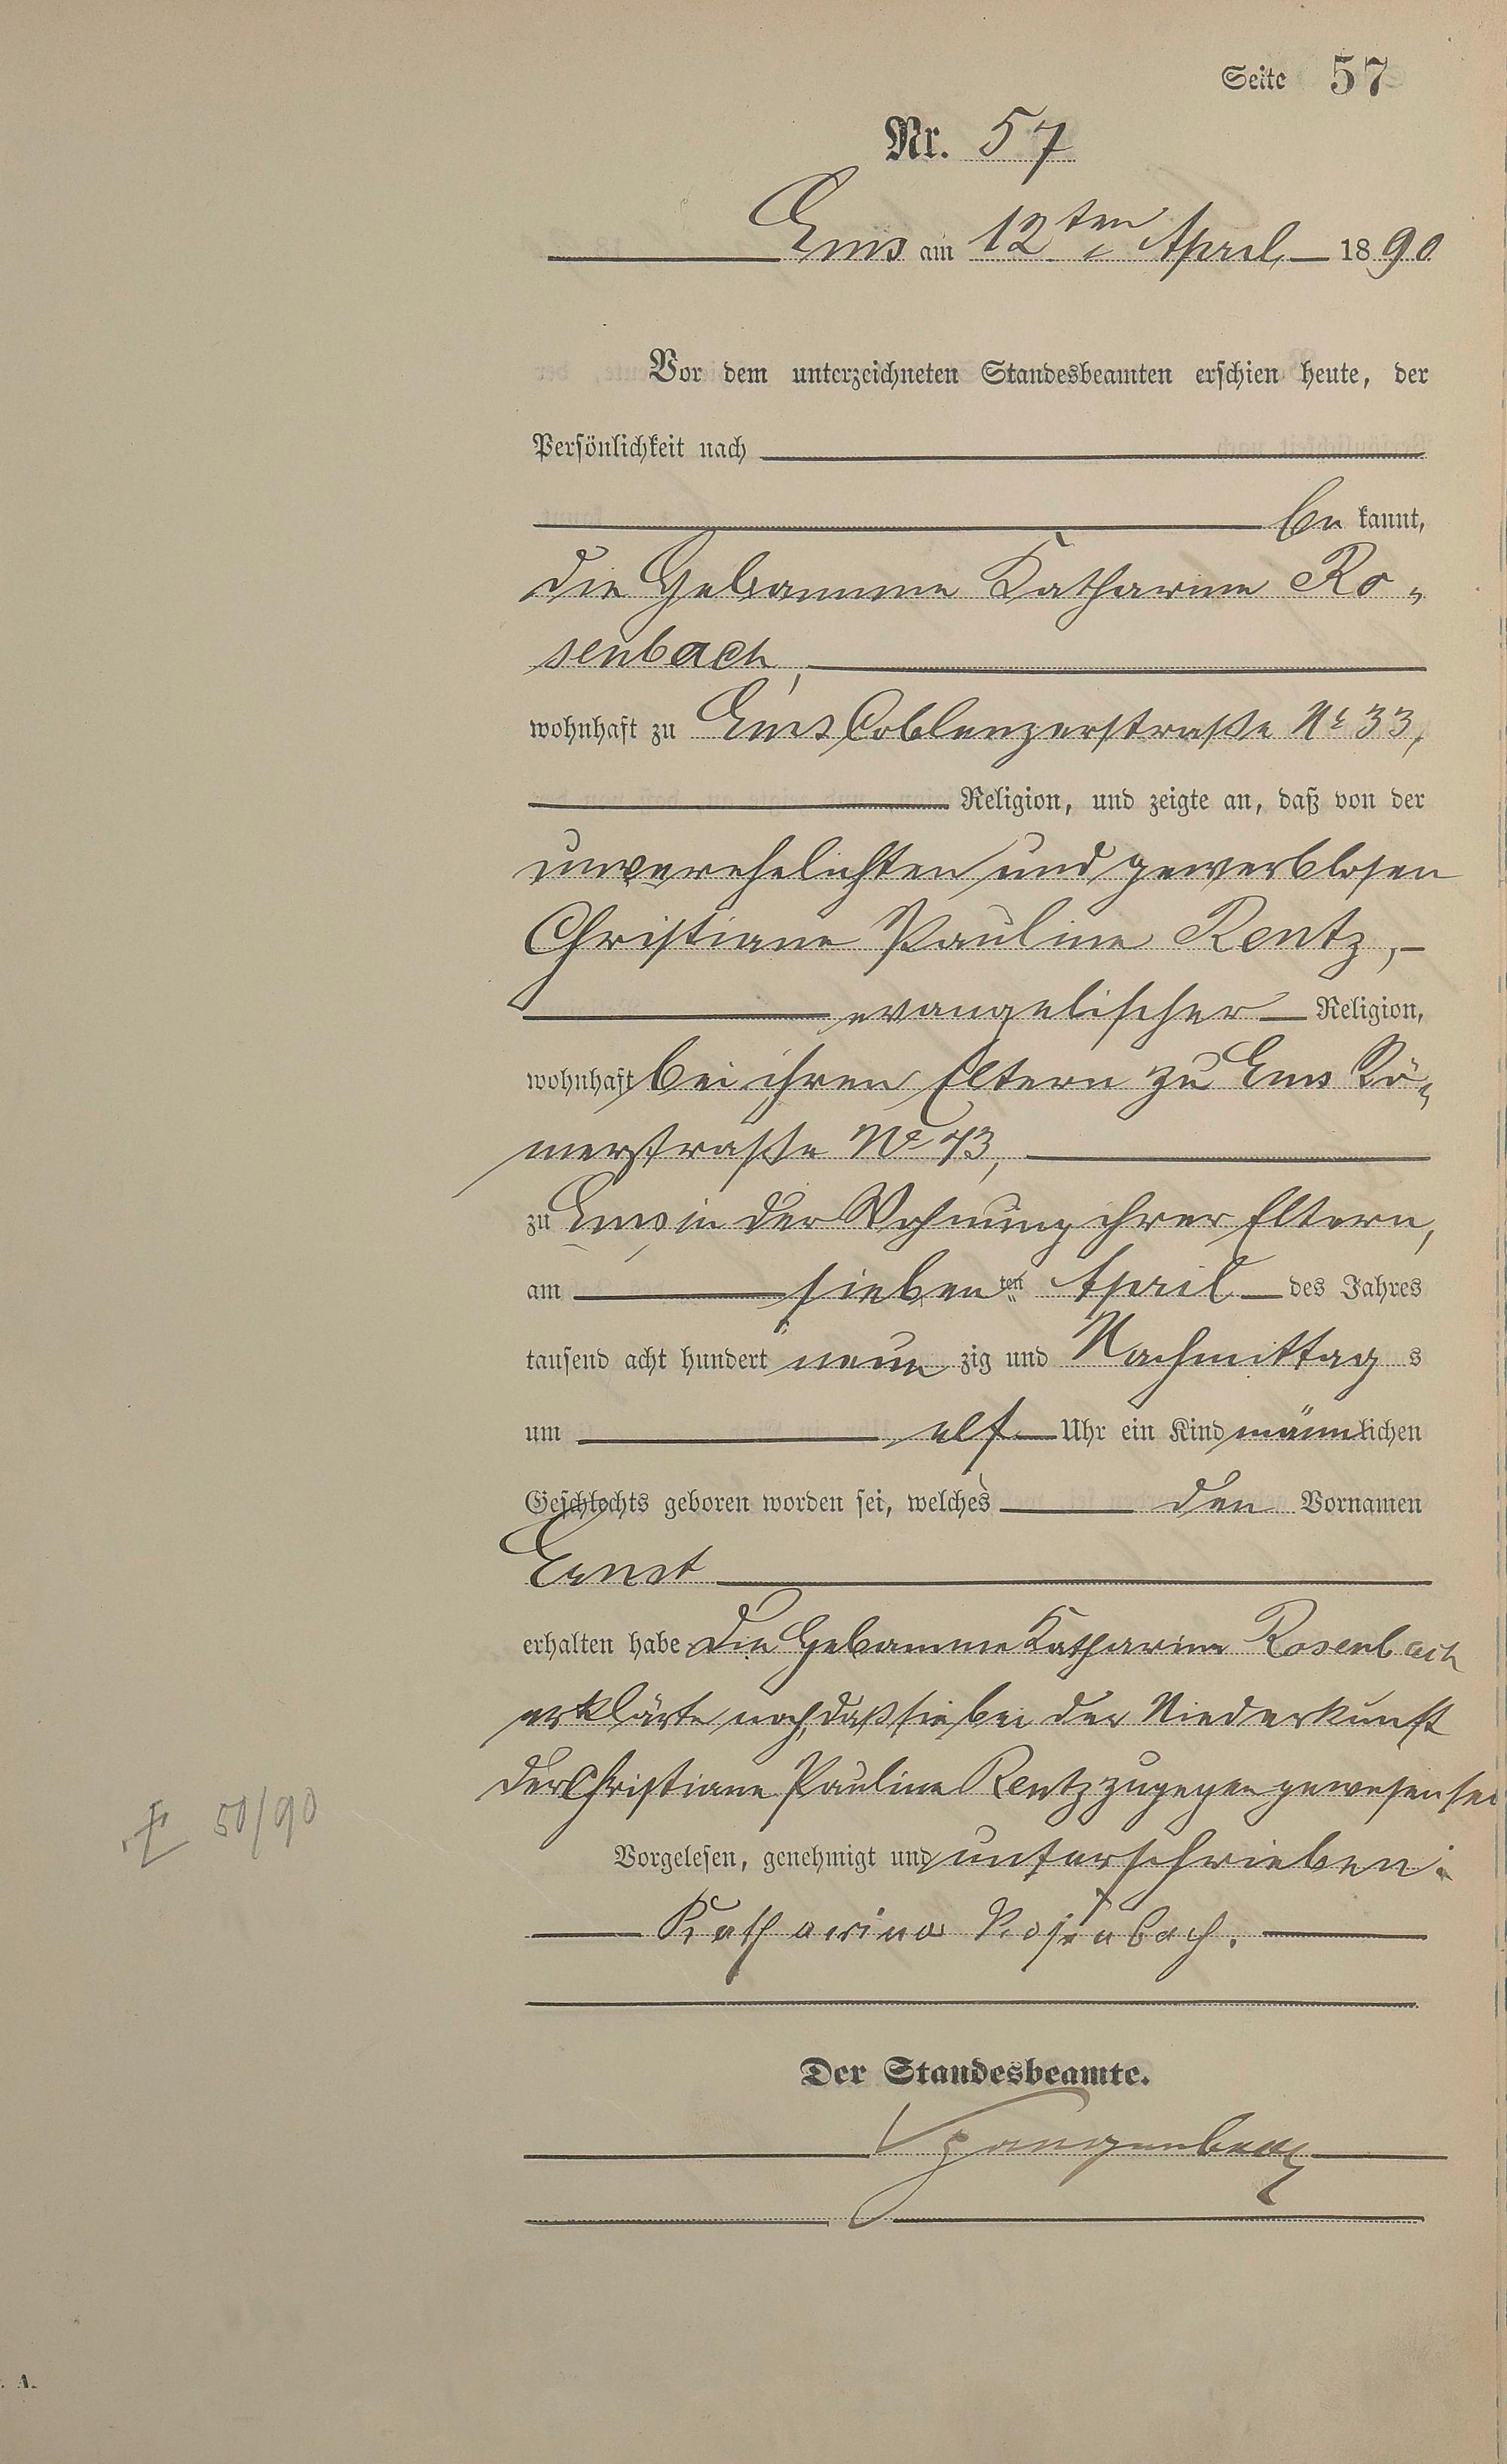 Seite 57
Nr. 57
Ems am 12ten April 1890
Vor dem unterzeichneten Standesbeamten erschien heute, der
Persönlichkeit nach
be kannt,
die Hebamme Katharina Ro-
senbach,
wohnhaft zu Ems Coblenzerstraße No 33,
Religion, und zeigte an, daß von der
unverehelichten und gewerblosen
Christiane Pauline Rentz,
evangelischer Religion,
wohnhaft bei ihren Eltern zu Ems Rö-
merstraße No 43,
zu Ems in der Wohnung ihrer Eltern,
am siebenten April des Jahres
tausend acht hundert neun zig und Nachmittag s
um elf Uhr ein Kind männlichen
Geschlechts geboren worden sei, welches den Vornamen
Ernst
erhalten habe. Die Hebamme Katharina Rosenbach
erklärte noch, daß sie bei der Niederkunft
der Christiane Pauline Rentz zugegen gewesen sei
Vorgelesen, genehmigt und unterschrieben:
Katharina Rosenbach.
Der Standesbeamte.
Spangenberg
† 50/90
A.